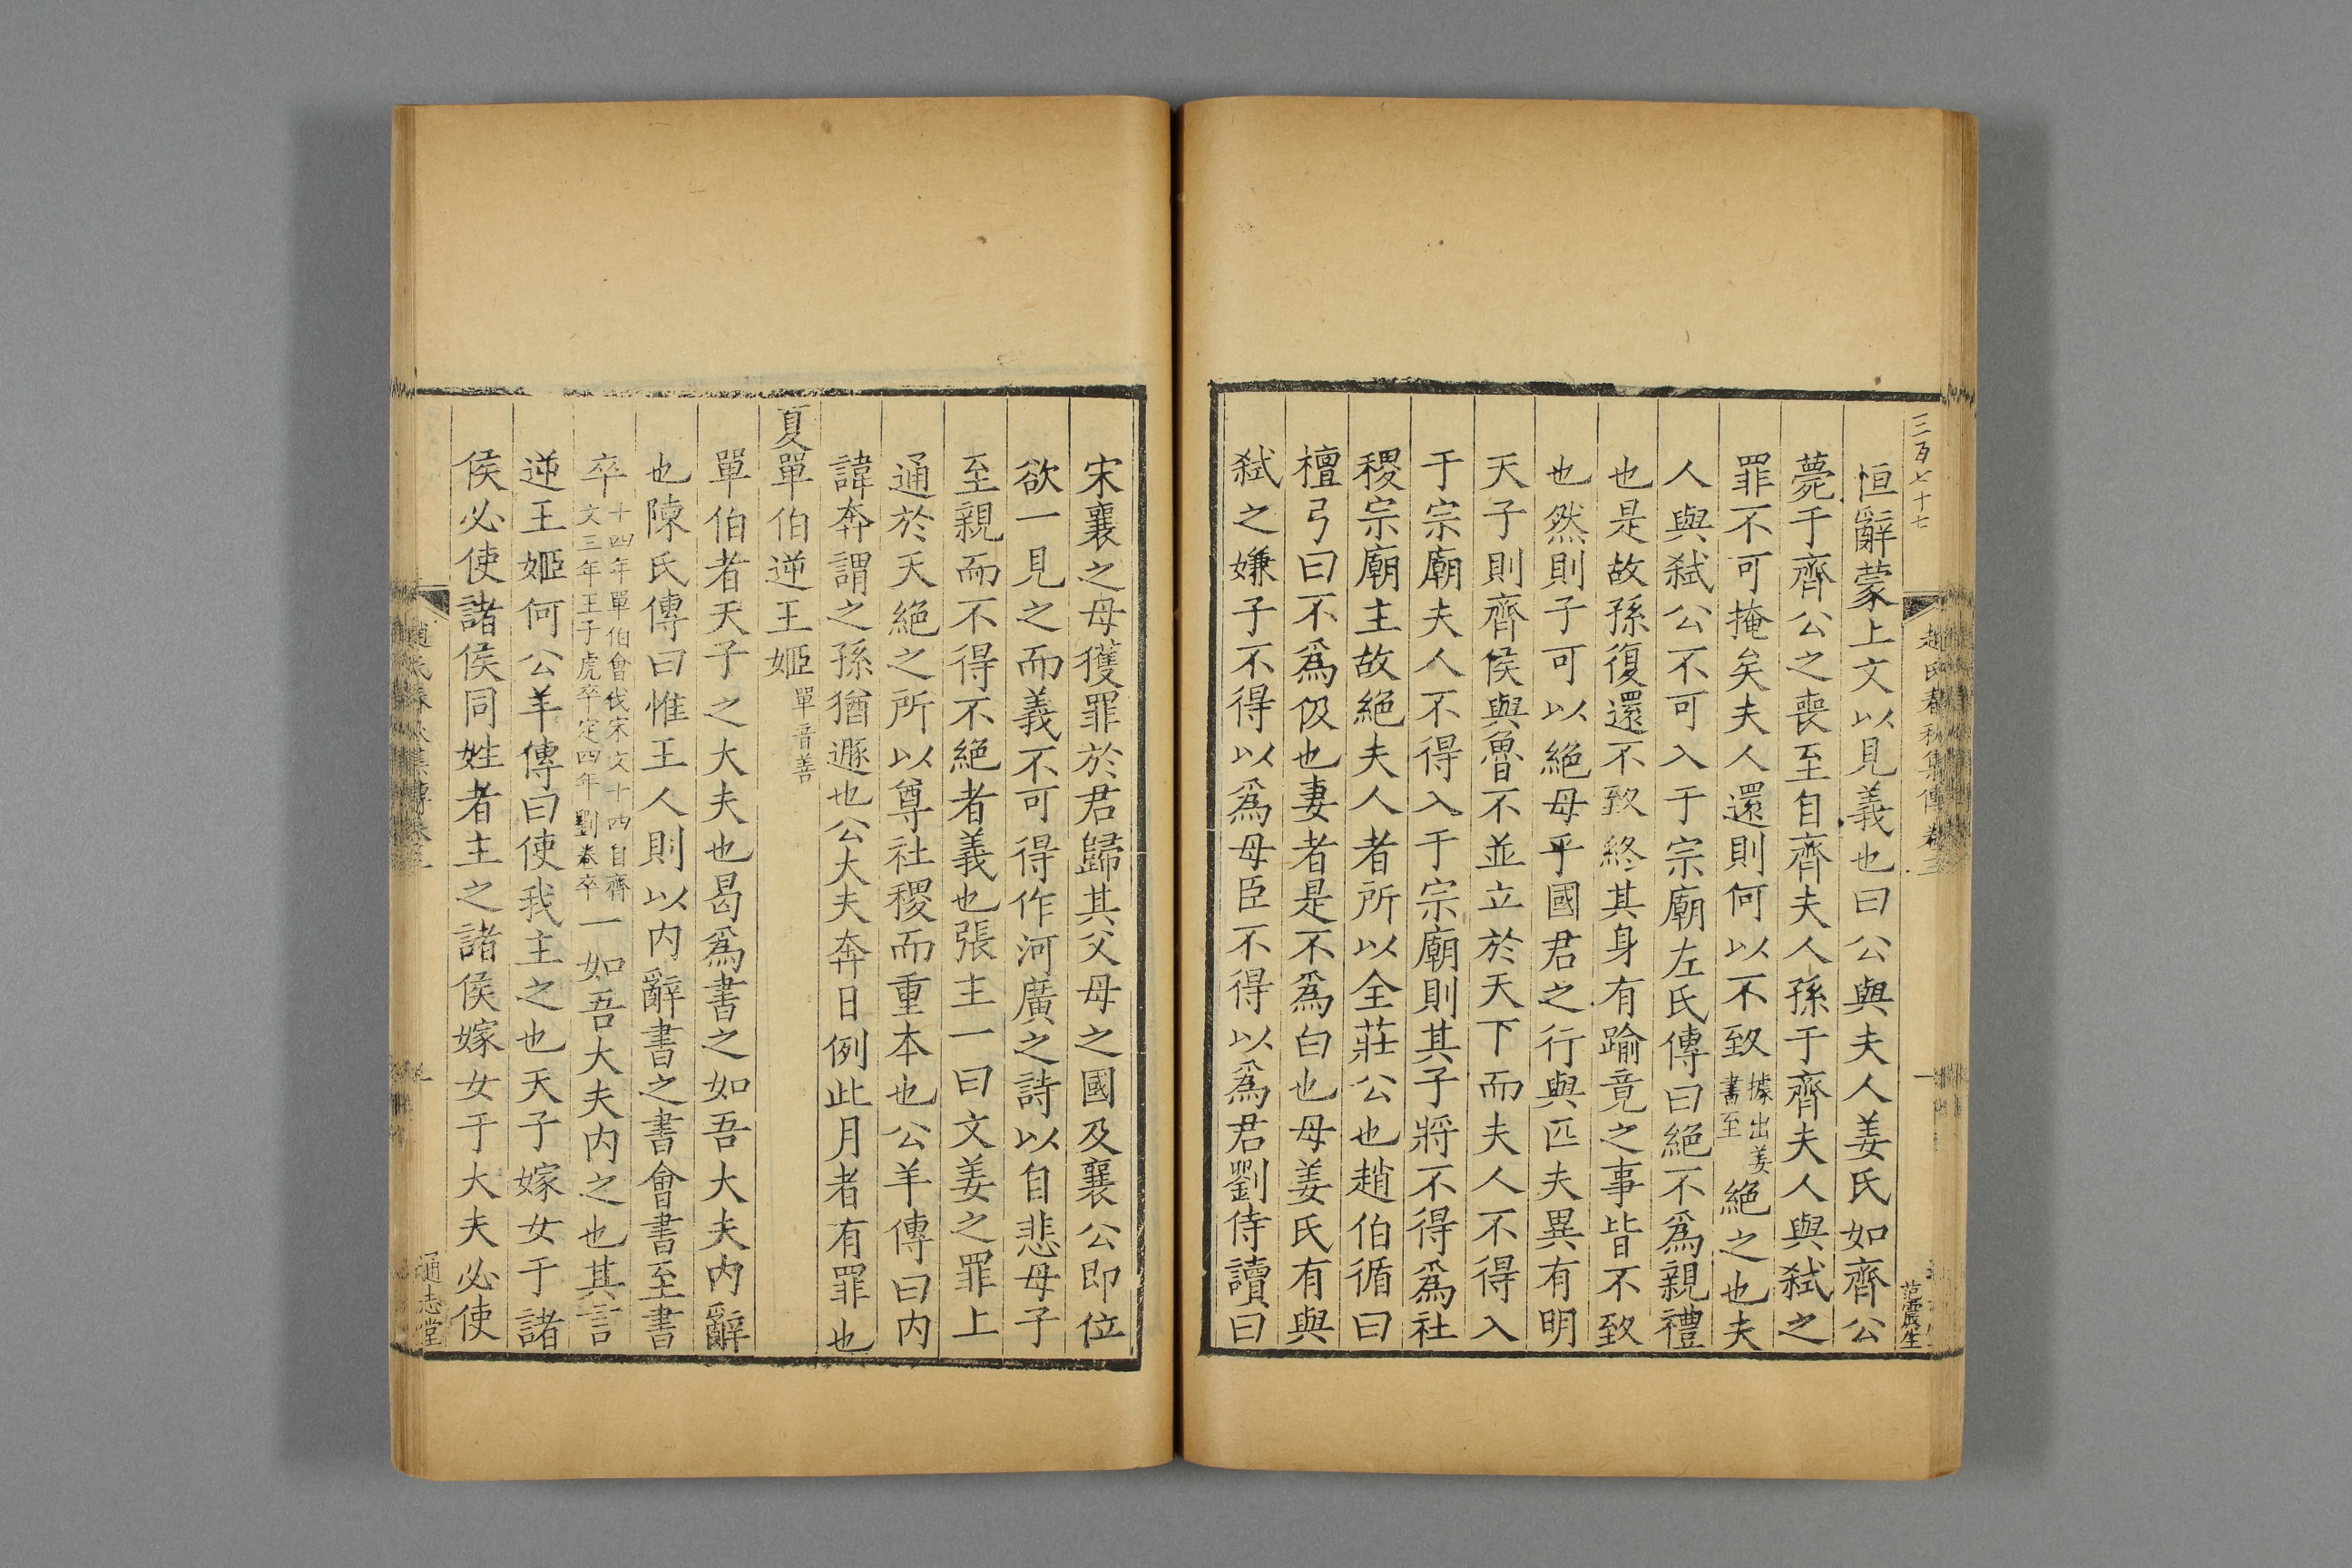 三百七十七
趙氏春秋集傳卷三
一
范震生
恒辭蒙上文以見義也曰公與夫人姜氏如齊公
薨于齊公之喪至自齊夫人孫于齊夫人與弒之
罪不可掩矣夫人還則何以不致據出姜書至絕之也夫
人與弒公不可入于宗廟左氏傳曰絕不爲親禮
也是故孫復還不致終其身有踰竟之事皆不致
也然則子可以絕母乎國君之行與匹夫異有明
天子則齊侯與魯不並立於天下而夫人不得入
于宗廟夫人不得入于宗廟則其子將不得爲社
稷宗廟主故絕夫人者所以全莊公也趙伯循曰
檀弓曰不爲伋也妻者是不爲白也母姜氏有與
弒之嫌子不得以爲母臣不得以爲君劉侍讀曰
宋襄之母獲罪於君歸其父母之國及襄公即位
欲一見之而義不可得作河廣之詩以自悲母子
至親而不得不絕者義也張主一曰文姜之罪上
通於天絕之所以尊社稷而重本也公羊傳曰内
諱奔謂之孫猶遯也公大夫奔日例此月者有罪也
夏單伯逆王姬單音善
單伯者天子之大夫也曷爲書之如吾大夫内辭
也陳氏傳曰惟王人則以内辭書之書會書至書
卒十四年單伯會伐宋文十四自齊文三年王子虎卒定四年劉卷卒一如吾大夫内之也其言
逆王姬何公羊傳曰使我主之也天子嫁女于諸
侯必使諸侯同姓者主之諸侯嫁女于大夫必使
趙氏春秋集傳卷三
通志堂